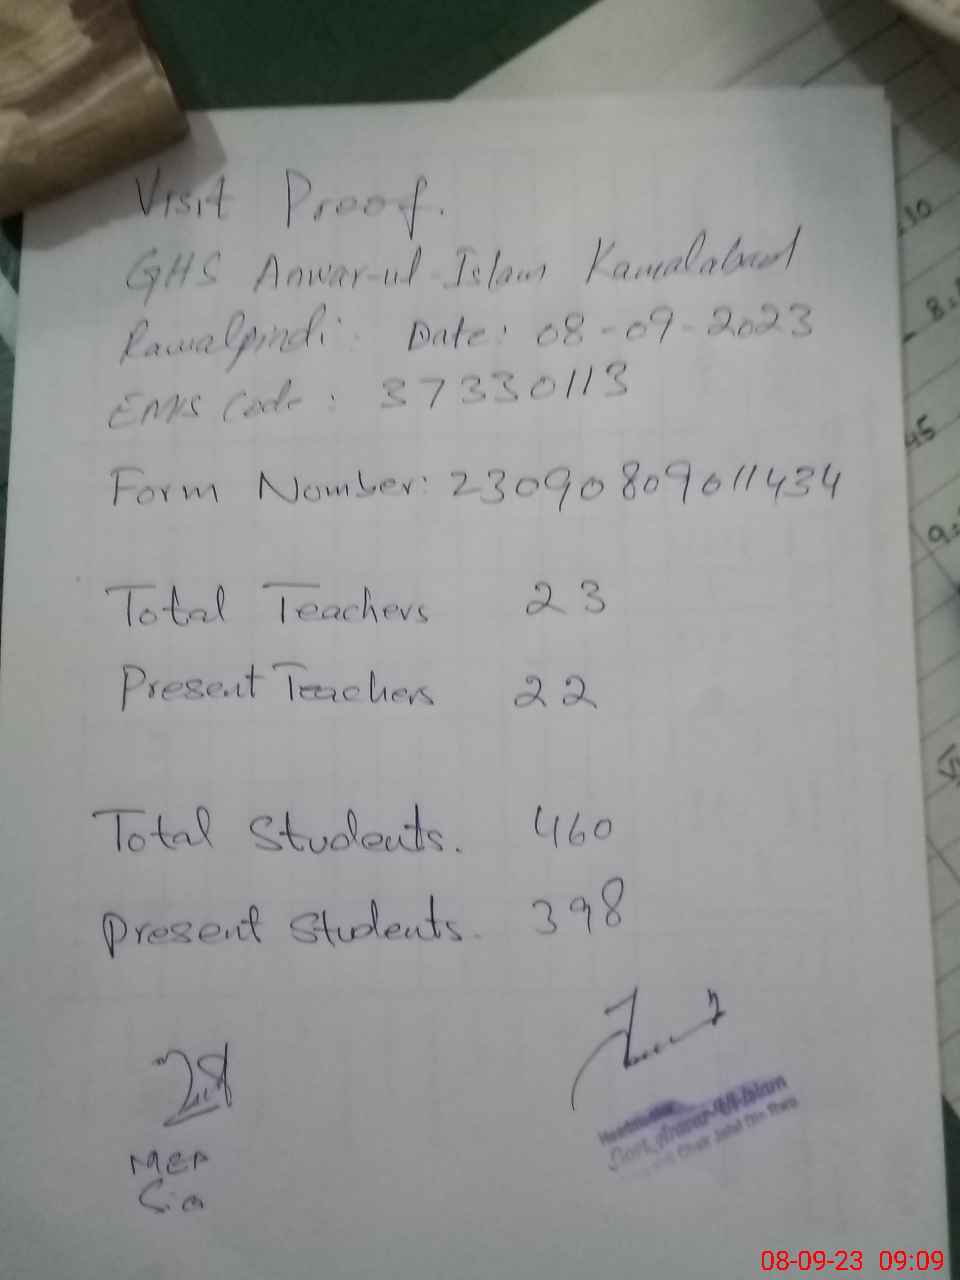 Visit Proof.
GHS Anwar-ul-Islam Kamalabad
Rawalpindi. Date: 08-09-2023
EMIS Code: 37330113
Form Number: 23090809011434
Total Teachers 23
Present Teachers 22
Total Students. 460
Present Students. 398
MEA
.10
8:
45
9:
08-09-23 09:09